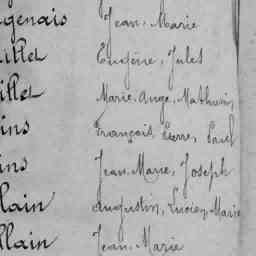 genais Jean, Marie
illet Eugène, Jules
illet Marie, Ange, Mathurin,
ins François, Pierre, Paul
ins Jean, Marie, Joseph
lain Augustin, Lucien, Marie
llain Jean, Marie